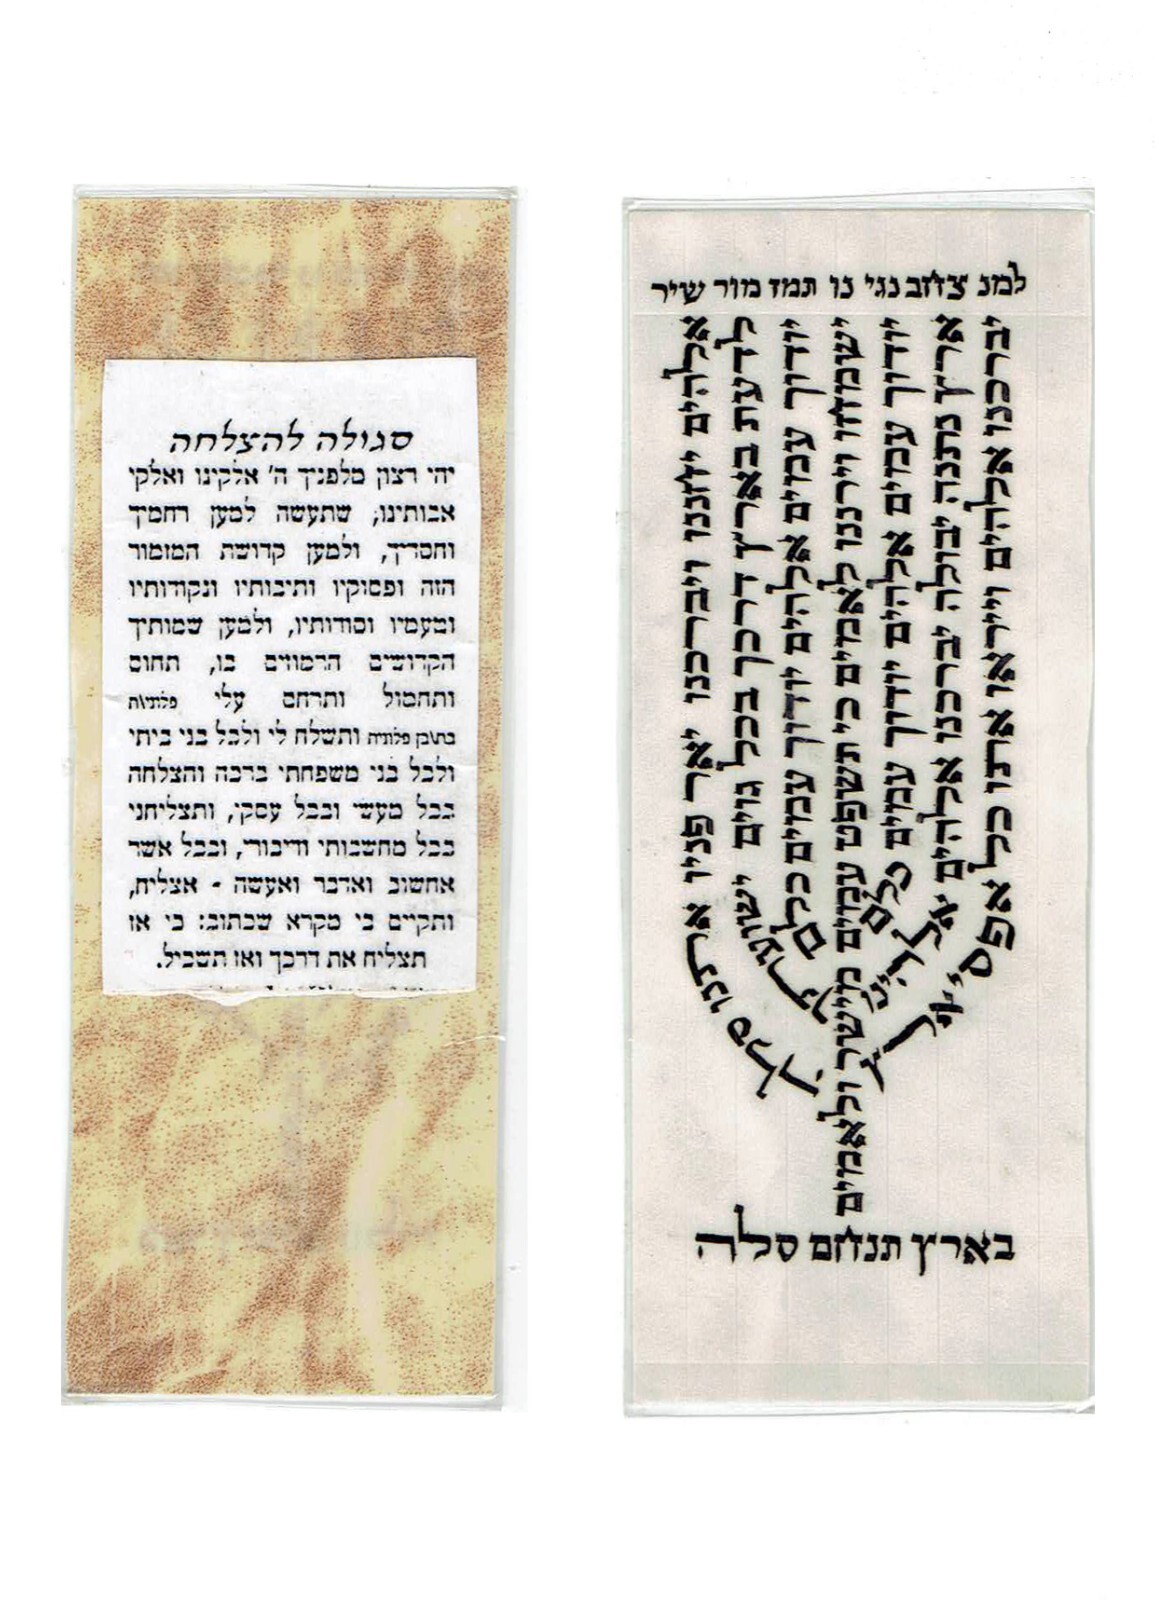 סגולה להצלחה
יהי רצון מלפניך ה' אלקינו ואלקי
אבותינו, שתעשה למען רחמיך
וחסדיך, ולמען קדושת המזמור
הזה ופסוקיו ותיבותיו ונקודותיו
וטעמיו וסודותיו, ולמען שמותיך
הקדושים הרמוזים בו, תחוס
ותחמול ותרחם עלי פלוני/ת
בת/בן פלונית ותשלח לי ולכל בני ביתי
ולכל בני משפחתי ברכה והצלחה
בכל מעשי ובכל עסקי, ותצליחני
בכל מחשבותי ודיבורי, ובכל אשר
אחשוב ואדבר ואעשה - אצליח,
ותקיים בי מקרא שכתוב: כי אז
תצליח את דרכך ואז תשכיל.
למנ צחב נגי נו תמז מור שיר
אלהים יחננו ויברכנו יאר פניו אתנו סלה
לדעת בארץ דרכך בכל גוים ישועתך
יודוך עמים אלהים יודוך עמים כלם
ישמחו וירננו לאמים כי תשפט עמים מישר ולאמים
יודוך עמים אלהים יודוך עמים כלם
ארץ נתנה יבולה יברכנו אלהים אלהינו
יברכנו אלהים וייראו אתו כל אפסי ארץ
בארץ תנחם סלה